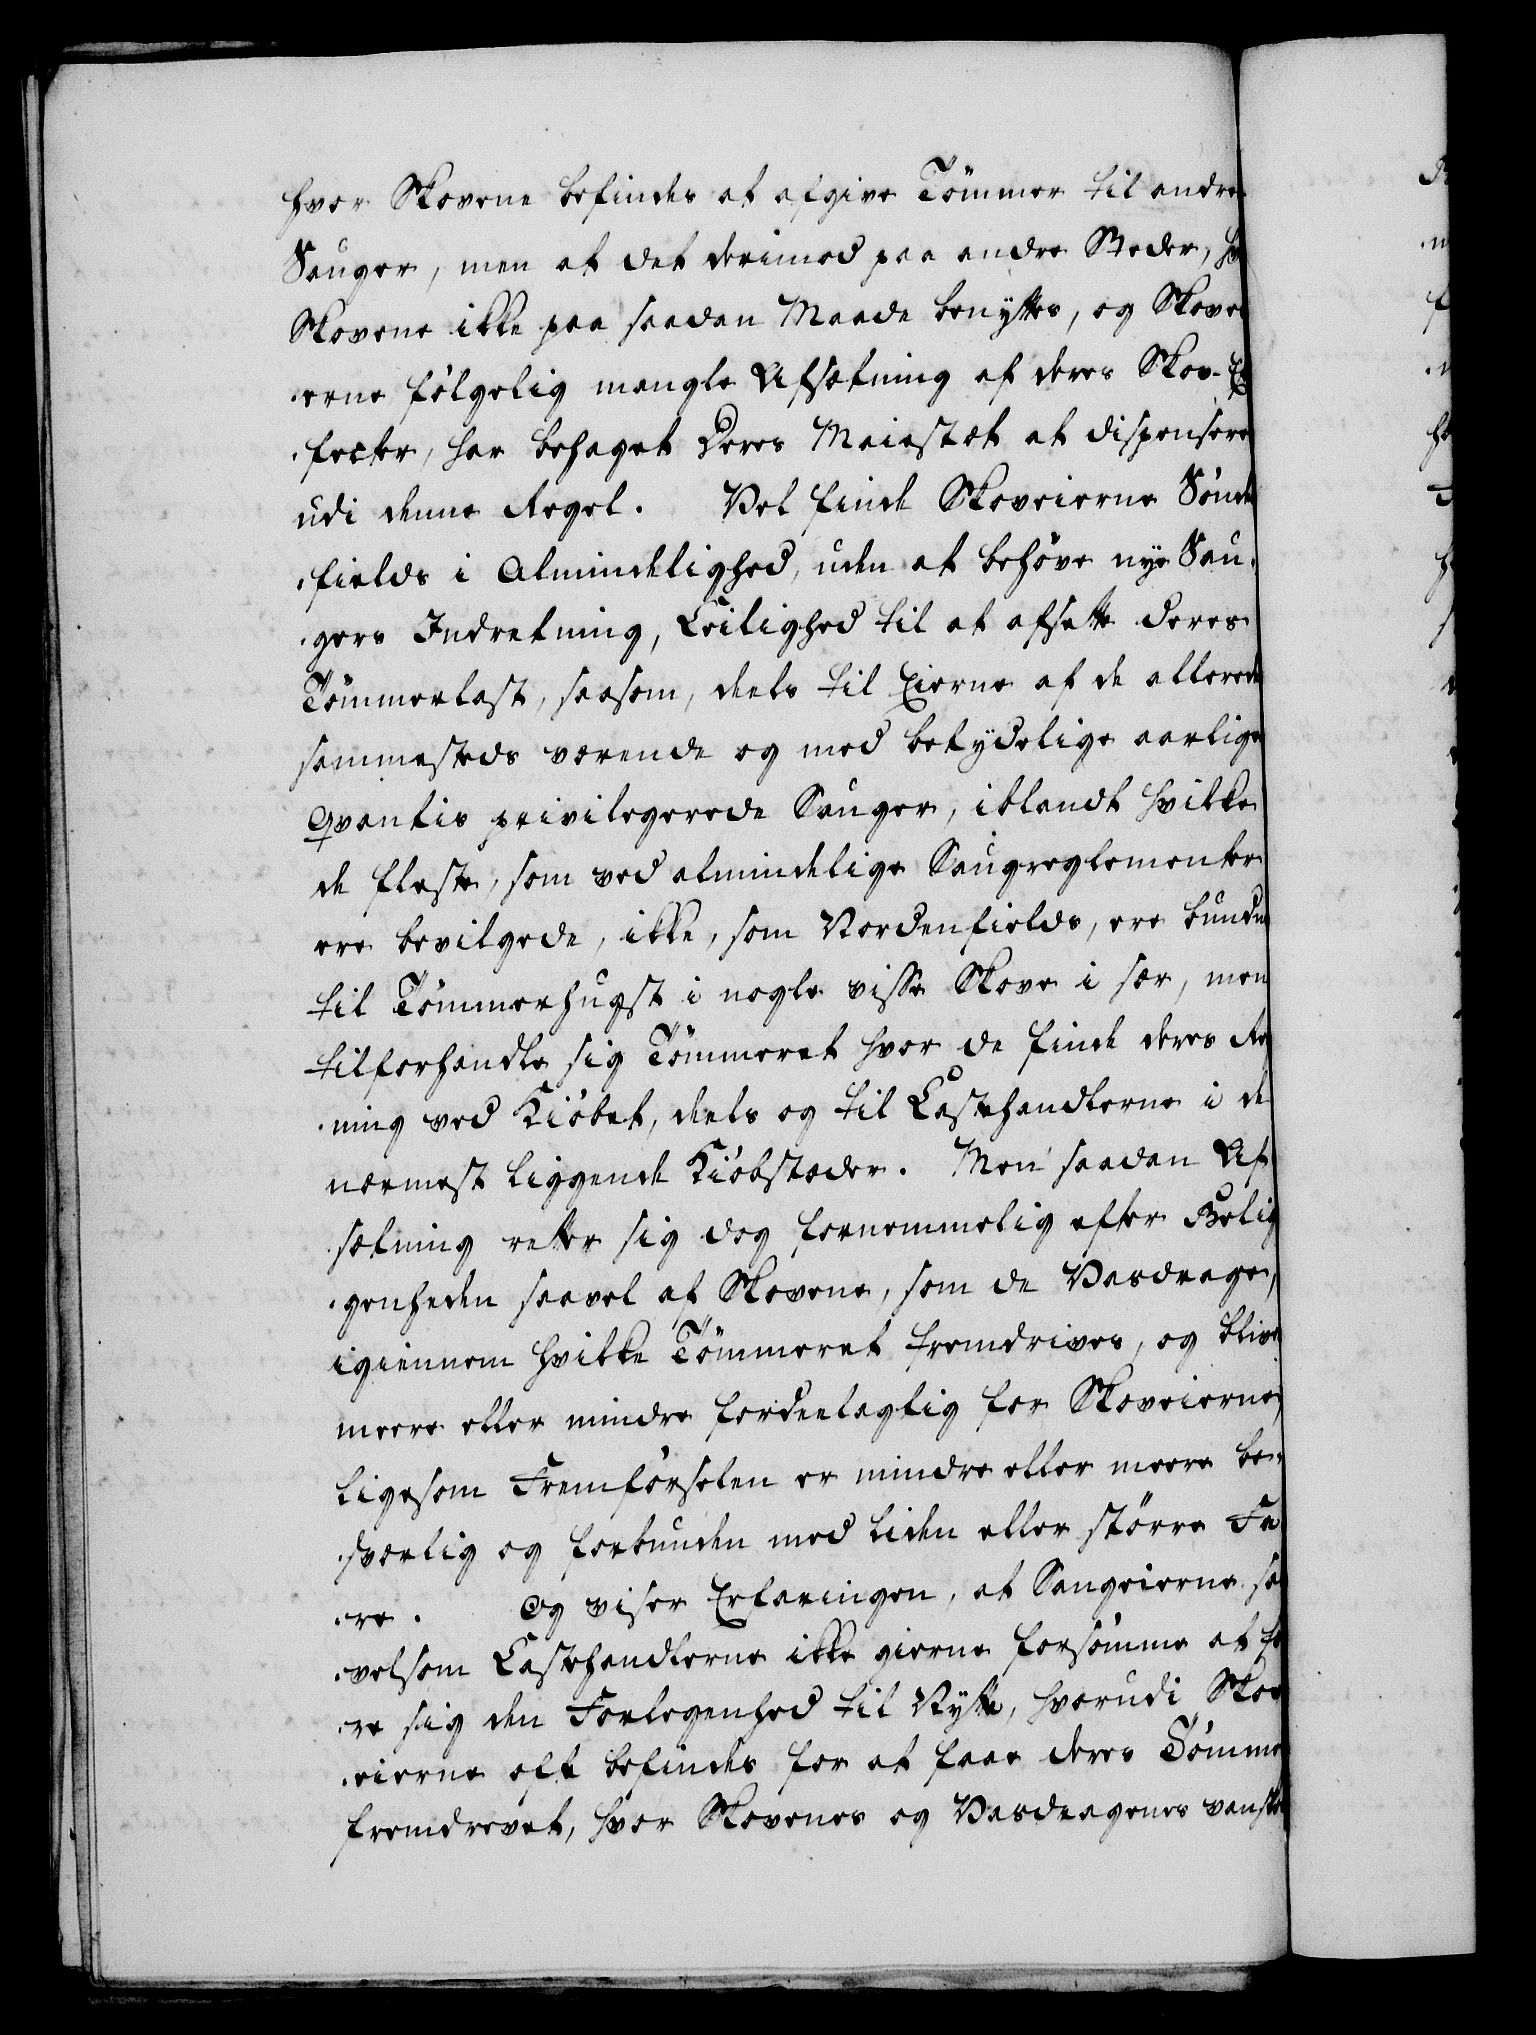 hvor Skovene befindes at afgive Tömmer til andre
Sauger, men at det derimod paa andre Steder, hv
Skovene ikke paa saadan Maade benyttes, og Skovei
-erne fölgelig mangle Afsætning af deres Skov-Ef
-fecter, har behaget Deres Maiestæt at dispensere
udi denne Regel. Vel finde Skoveierne Sönden
-fields i Almindelighed, uden at behöve nye Sau-
-gers Indretning, Leilighed til at afsette deres
Tömmerlast, saasom, deels til Eierne af de allerede
sammesteds værende og med betydelige aarlige
Qvantis privilegerede Sauger, iblandt hvilke
de fleste, som ved almindelige Saugreglementer
ere bevilgede, ikke, som Nordenfields, ere bundne
til Tömmerhugst i nogle visse Skove i sær, men
tilforhandle sig Tömmeret hvor de finde deres Re
-ning ved Kiöbet, deels og til Lasthandlerne i de
nærmest liggende Kiöbstæder. Men saadan Af
-sætning retter sig dog fornemmelig efter Belig
-genheden saavel af Skovene, som de Vasdrage,
igiennem hvilke Tömmeret fremdrives, og blive
meere eller mindre fordeelagtig for Skoveierne,
ligesom Fremförselen er mindre eller meere be-
-sværlig og forbunden med liden eller större Fa
-re. Og viser Erfaringen, at Saugeierne saa
-velsom Lasthandlerne ikke gierne forsömme at fö
-re sig den Forlegenhed til Nytte, hvorudi Skov
-eierne oft befindes for at faae deres Tömmer
fremdrevet, hvor Skovenes og Vasdragenes vanske